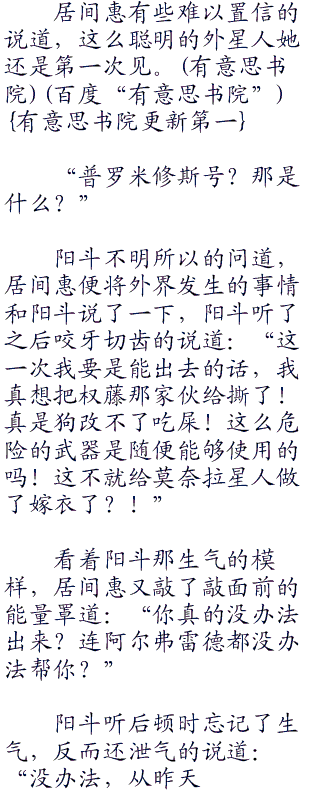 居间惠有些难以置信的
说道，这么聪明的外星人她
还是第一次见。(有意思书
院)(百度“有意思书院”)
{有意思书院更新第一}
“普罗米修斯号？那是
什么？”
阳斗不明所以的问道，
居间惠便将外界发生的事情
和阳斗说了一下，阳斗听了
之后咬牙切齿的说道：“这
一次我要是能出去的话，我
真想把权藤那家伙给撕了！
真是狗改不了吃屎！这么危
险的武器是随便能够使用的
吗！这不就给莫奈拉星人做
了嫁衣了？！”
看着阳斗那生气的模
样，居间惠又敲了敲面前的
能量罩道：“你真的没办法
出来？连阿尔弗雷德都没办
法帮你？”
阳斗听后顿时忘记了生
气，反而还泄气的说道：
“没办法，从昨天